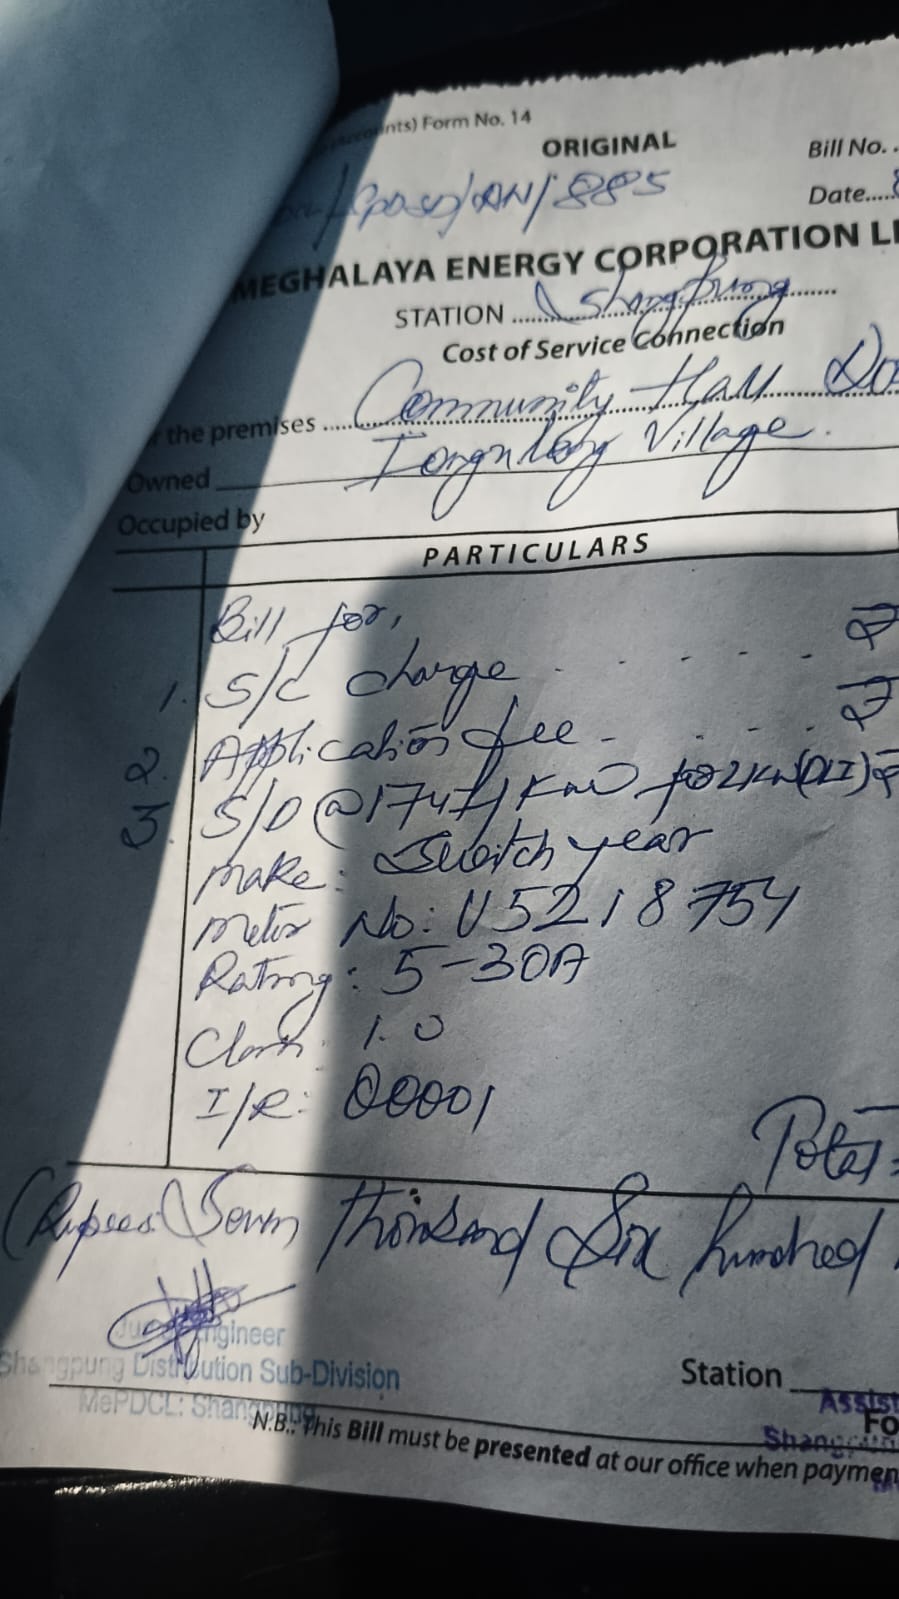 Form No. 14
ORIGINAL
Bill No. .
/AN/885
Date.....
MEGHALAYA ENERGY CORPORATION LI
STATION ........ Shangpung ........
Cost of Service Connection
the premises ..... Community Hall
Village.
Owned
Occupied by
PARTICULARS
Bill for,
1. S/C charge - - - - ₹
2. Application fee - - - - ₹
3. S/D @ 1747/KW for 2KW(DLT) ₹
Make: Switch year
Meter No: U5218754
Rating: 5-30A
Class: 1.0
I/R: 00001
Total =
(Rupees Seven thousand Six hundred
Junior Engineer
Shangpung Distribution Sub-Division
MePDCL: Shangpung
Station
Assist
Fo
Shangpung
N.B.: This Bill must be presented at our office when paymen